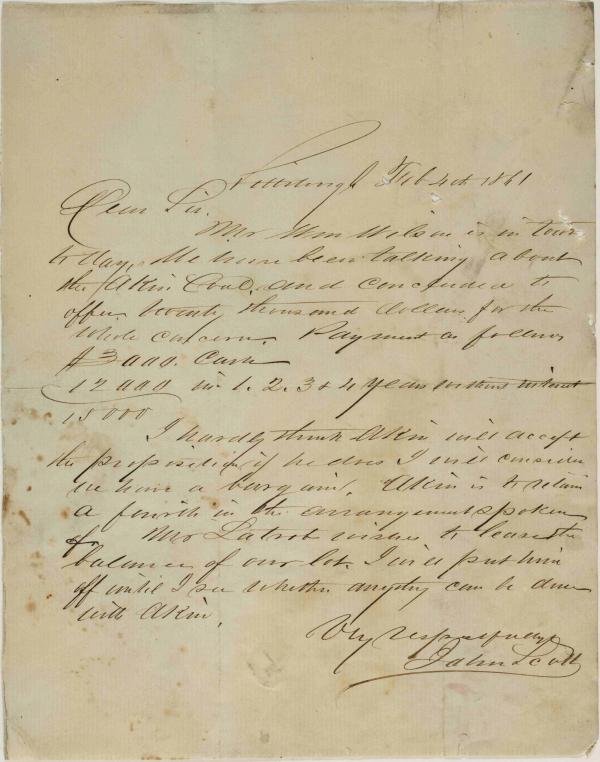 Pittsburgh Feb 4th 1861
Dear Sir.
Mr Wm Wilson is in town
to day. We have been talking about
the Akin Coal. and concluded to
offer twenty thousand dollars for the
whole concern. Payment as follows
$3000. Cash
12000 in 1. 2. 3 & 4 years without interest
15000
I hardly think Akin will accept
the proposition if he does I will consider
we have a bargain. Akin is to retain
a fourth in the arrangement spoken
of
Mr Latrob wishes to lease the
balance of our lot. I will put him
off until I see whether anything can be done
with Akin.
Very respectfully
John Scott